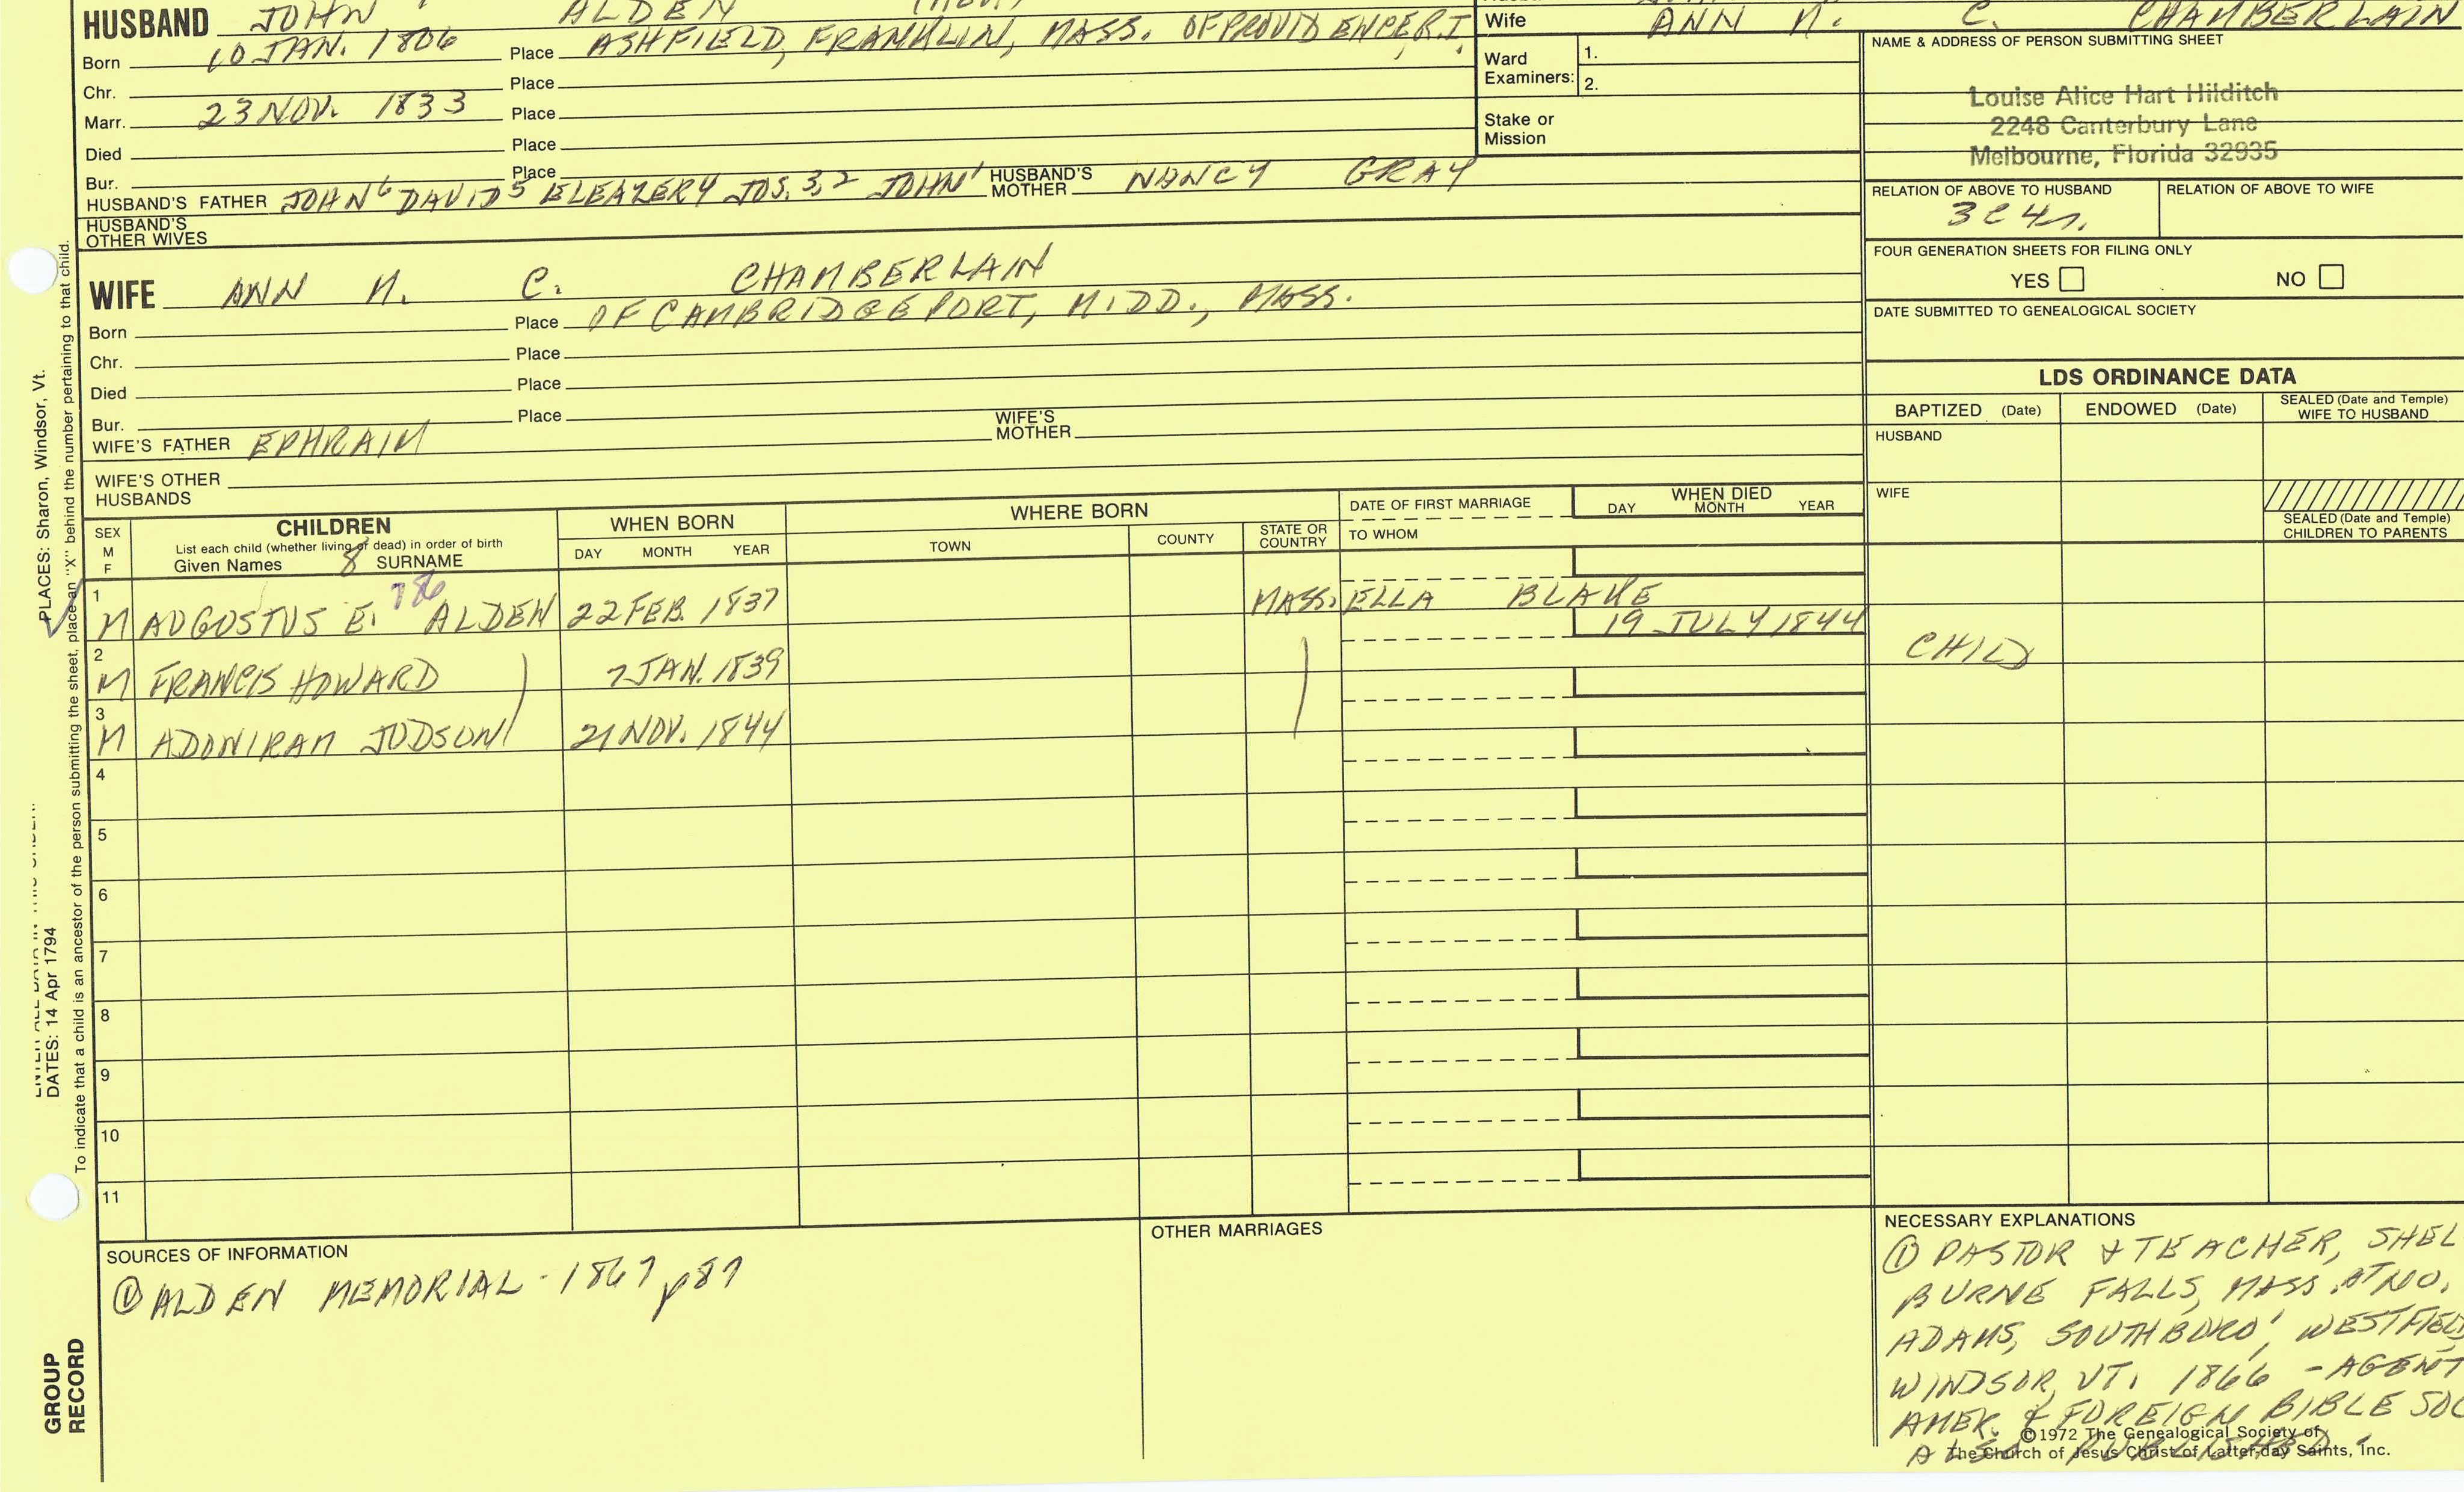 HUSBAND JOHN ALDEN
Born 10 JAN. 1806 Place ASHFIELD, FRANKLIN, MASS. OF PROVIDENCE R.I.
Chr. Place
Marr. 23 NOV. 1833 Place
Died Place
Bur. Place
HUSBAND'S FATHER JOHN 6 DAVID 5 ELEAZER 4 JOS. 3,2 JOHN 1 HUSBAND'S MOTHER NANCY GRAY
HUSBAND'S OTHER WIVES
Wife ANN M. C. CHAMBERLAIN
Ward Examiners: 1.
2.
Stake or Mission
NAME & ADDRESS OF PERSON SUBMITTING SHEET
Louise Alice Hart Hilditch
2248 Canterbury Lane
Melbourne, Florida 32935
RELATION OF ABOVE TO HUSBAND RELATION OF ABOVE TO WIFE
3C4r.
FOUR GENERATION SHEETS FOR FILING ONLY
YES NO
DATE SUBMITTED TO GENEALOGICAL SOCIETY
WIFE ANN M. C. CHAMBERLAIN
Born Place OF CAMBRIDGEPORT, MIDD., MASS.
Chr. Place
Died Place
Bur. Place
WIFE'S FATHER EPHRAIM WIFE'S MOTHER
WIFE'S OTHER HUSBANDS
LDS ORDINANCE DATA
BAPTIZED (Date) ENDOWED (Date) SEALED (Date and Temple) WIFE TO HUSBAND
HUSBAND
WIFE
SEALED (Date and Temple) CHILDREN TO PARENTS
SEX M F
CHILDREN
List each child (whether living or dead) in order of birth
Given Names 8 SURNAME
WHEN BORN
DAY MONTH YEAR
WHERE BORN
TOWN COUNTY STATE OR COUNTRY
DATE OF FIRST MARRIAGE
TO WHOM
WHEN DIED
DAY MONTH YEAR
786
1 M AUGUSTUS E. ALDEN 22 FEB. 1837 MASS. ELLA BLAKE
19 JULY 1844 CHILD
2 M FRANCIS HOWARD 7 JAN. 1839
3 M ADONIRAM JUDSON 21 NOV. 1844
4
5
6
7
8
9
10
11
SOURCES OF INFORMATION
① ALDEN MEMORIAL - 1867 p87
OTHER MARRIAGES
NECESSARY EXPLANATIONS
① PASTOR & TEACHER, SHEL
BURNE FALLS, MASS. AT NO.
ADAMS, SOUTHBORO', WESTFIELD
WINDSOR, VT. 1866 - AGENT
AMER. & FOREIGN BIBLE SOC
ALSO PUBLISHED
©1972 The Genealogical Society of
The Church of Jesus Christ of Latter-day Saints, Inc.
PLACES: Sharon, Windsor, Vt.
DATES: 14 Apr 1794
To indicate that a child is an ancestor of the person submitting the sheet, place an "X" behind the number pertaining to that child.
GROUP
RECORD